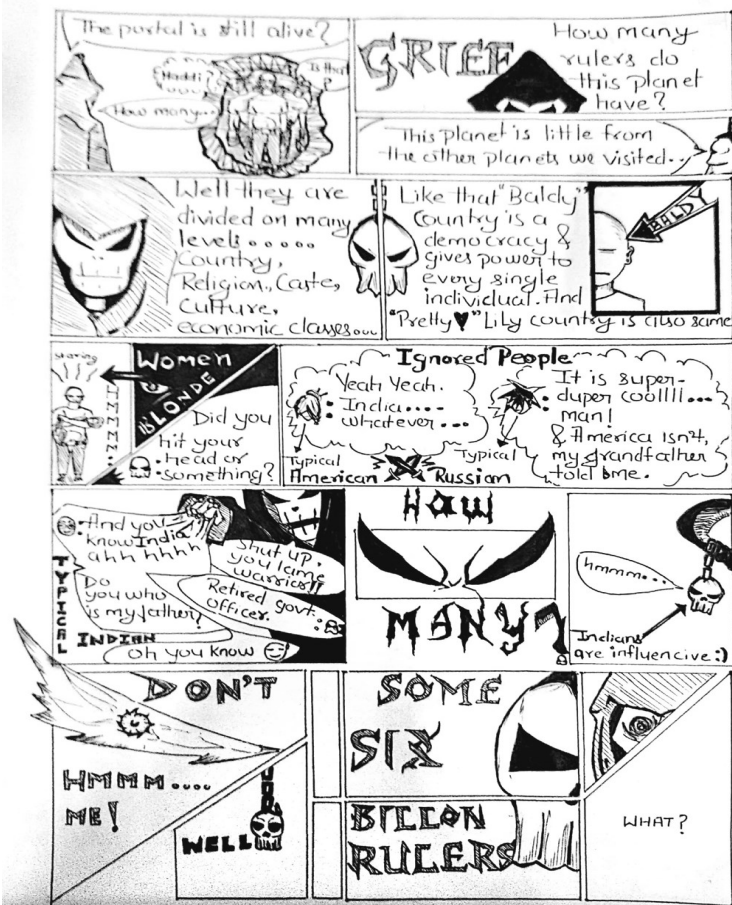 The portal is still alive?
Haddi?
Is that
?
How many...
GRIEF
How many
rulers do
this planet
have?
This planet is little from
the other planets we visited...
Well they are
divided on many
levels.....
Country,
Religion, Caste,
Culture,
economic classes...
Like that "Baldy"
Country is a
democracy &
gives power to
every single
individual. And
"Pretty ♥" Lily country is also same
BALDY
Staring
HMMMM:
Women
BLONDE
Did you
hit your
head or
something?
Ignored People
Yeah Yeah.
India....
whatever...
Typical
American
It is super-
duper coollll...
man!
& America isn't,
my grandfather
told me.
Typical
Russian
And you
know India
ahh hhhh
Do
you who
is my father?
TYPICAL
INDIAN
Shut up,
you lame
warrior!!
Retired govt.
officer.
Oh you know
HAW
MANY?
hmmm...
Indians
are influencive :)
DON'T
HMMM....
ME!
WELL
SOME
SIX
BILLON
RULERS
WHAT?